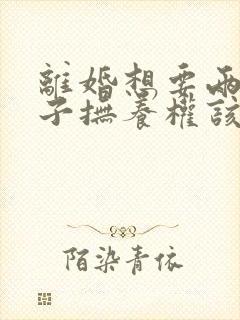 離婚想要兩
子撫養權該
陌染青依